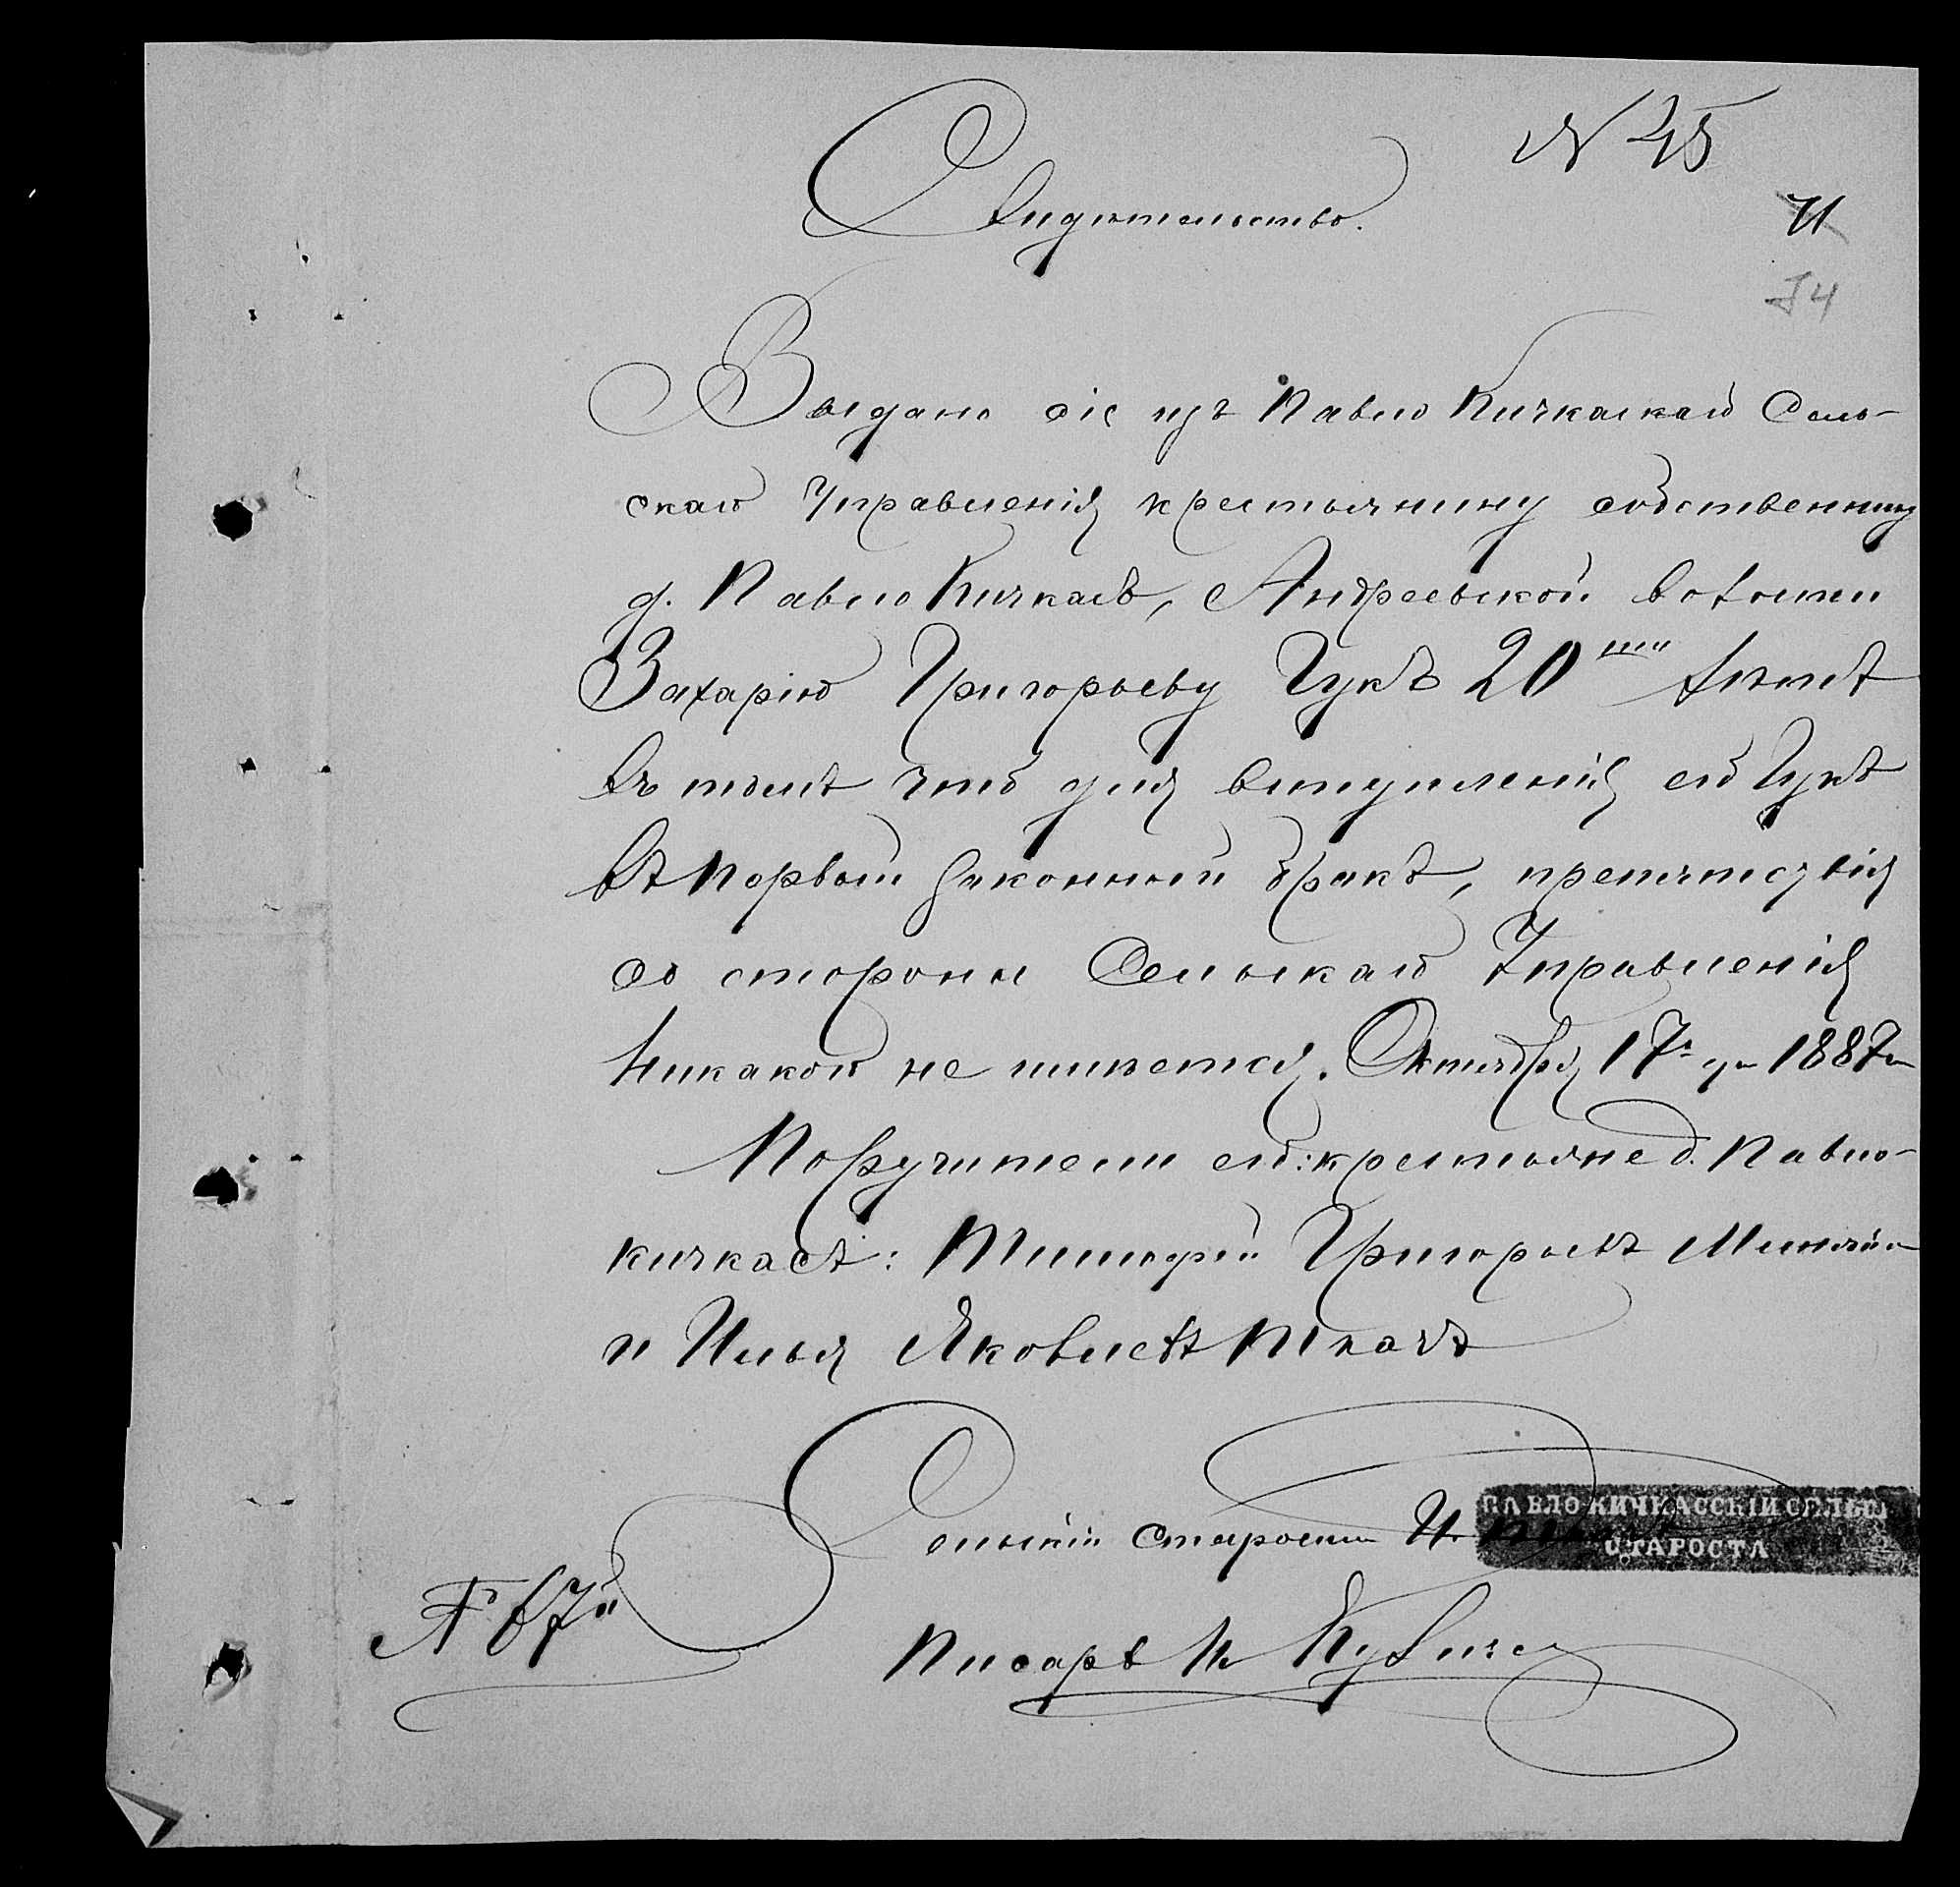 N 45
Свидѣтельство.
71
74
Выдано сіе изъ Павло Кичкаскаго Сель-
скаго Управленія крестьянину собственнику
д. Павло Кичкасъ, Андреевской волости
Захарію Григорьеву Гукъ 20ти лѣтъ
въ томъ что для вступленія его Гукъ
въ первый законный бракъ, препятствія
со стороны Сельскаго Управленія
никакого не имѣется. Октября 17го дня 1887г
Поручители его: крестьяне д. Павло-
кичкасъ: Тимофей Григорьевъ
и Илья Яковлевъ Ткачъ
Сельскій Староста И.
ПАВЛО-КИЧКАССКІЙ СЕЛЬСК
СТАРОСТА
№ 67й
Писарь